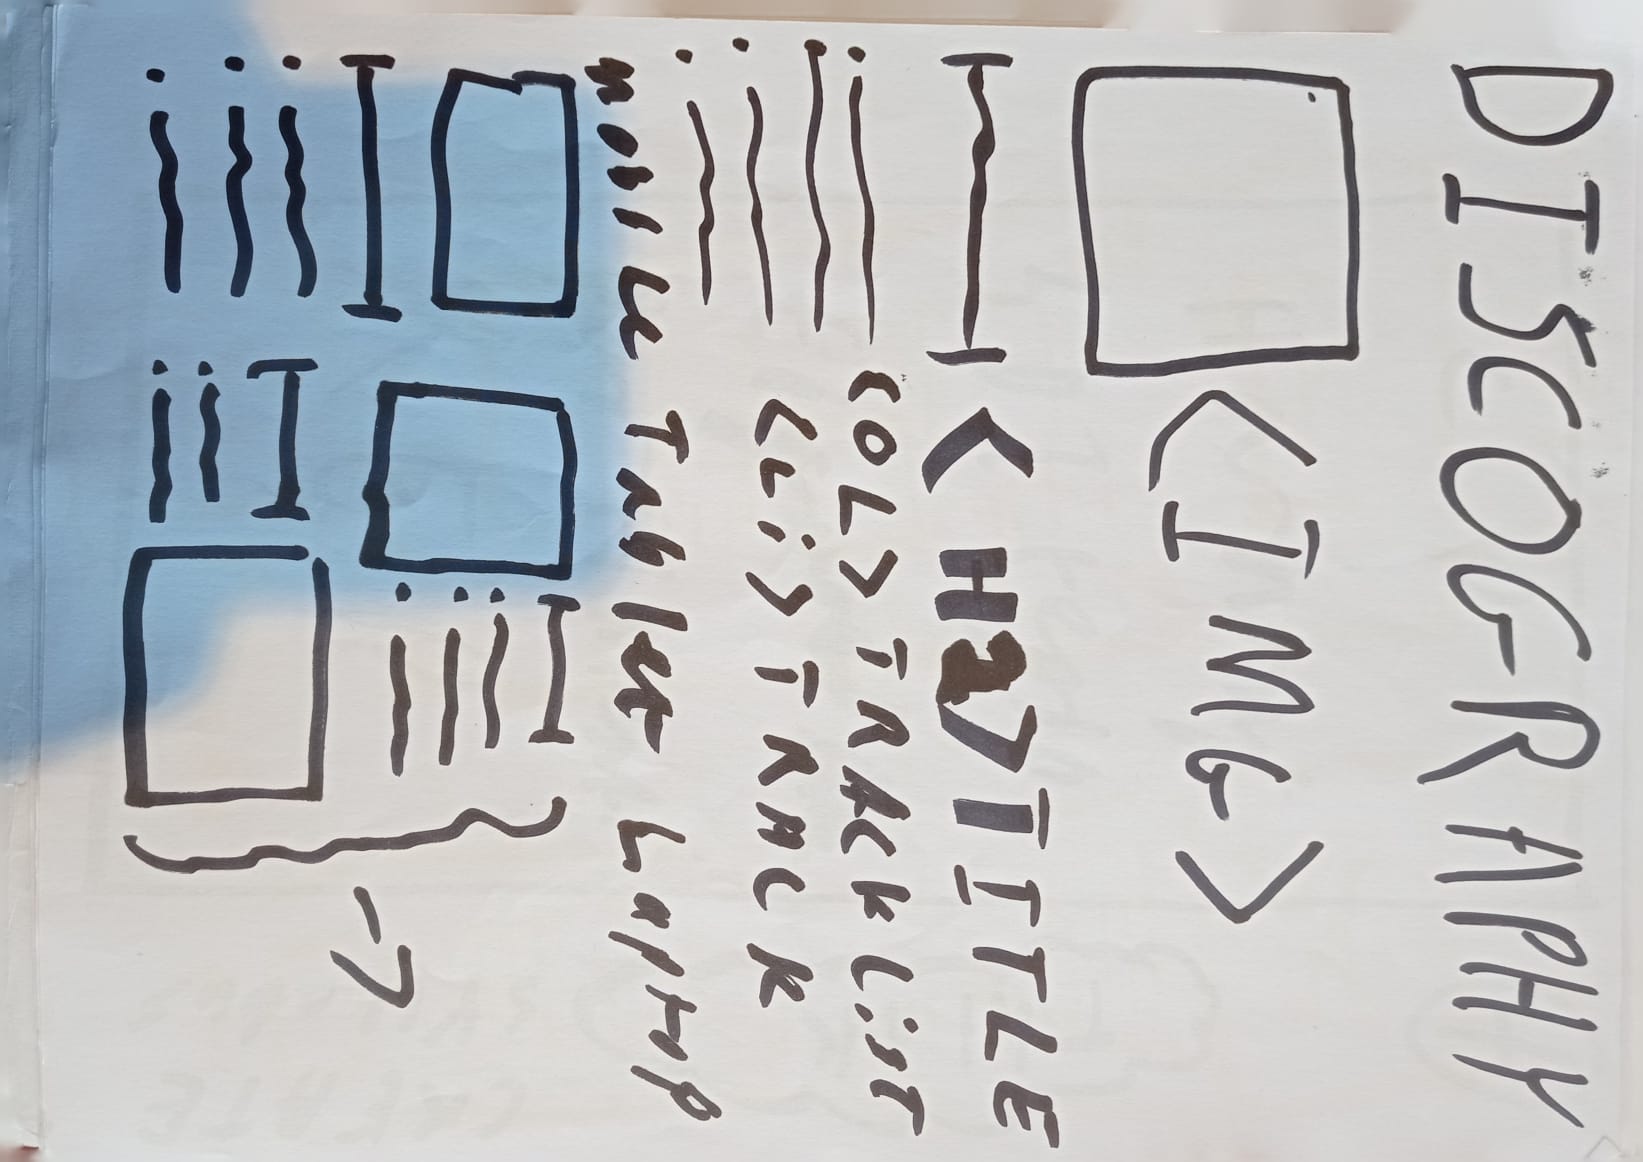 DISCOGRAPHY
<IMG>
<H2>TITLE
<OL> TRACK LIST
<Li> TRACK
Mobile Tablet Laptop